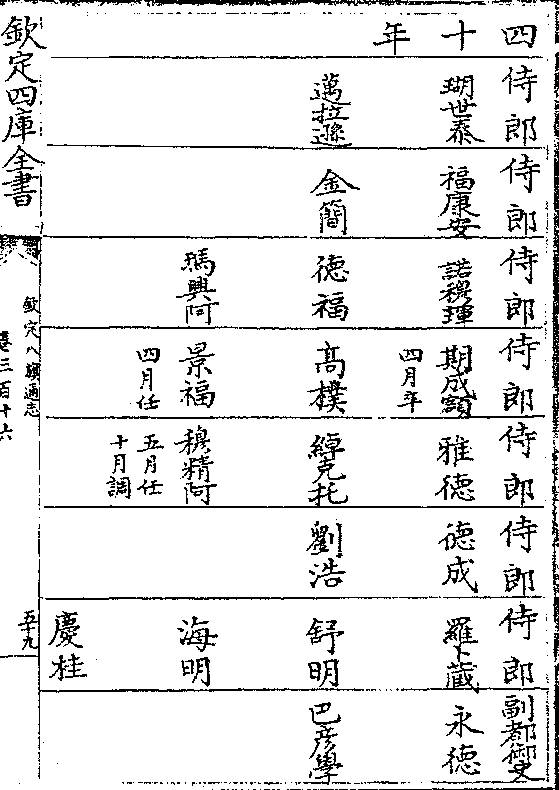 四十年
侍郎 瑚世泰 邁拉遜
侍郎 福康安 金簡
侍郎 諾穆琿 德福 瑪興阿
侍郎 期成額 四月卒 高樸 景福 四月任
侍郎 雅德 綽克托 穆精阿 五月任 十月調
侍郎 德成 劉浩
侍郎 羅卜藏 舒明 海明 慶桂
副都御史 永德 巴彥學
欽定四庫全書
欽定八旗通志
卷三百十六
五十九